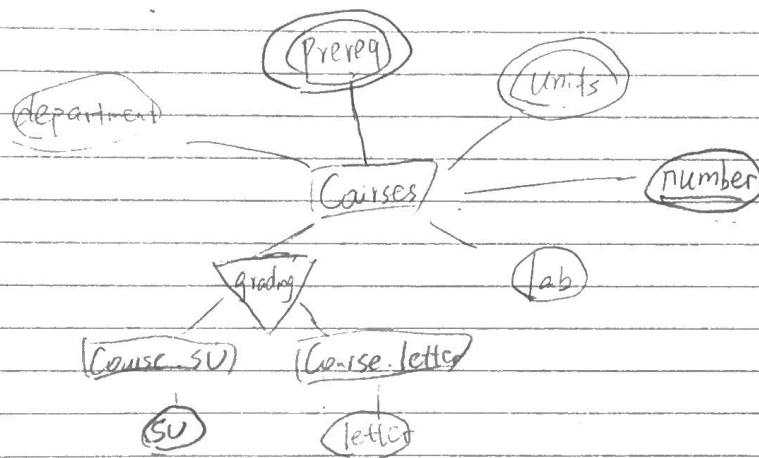 Prereq
units
department
number
Courses
lab
grading
Course_SU
Course_letter
SU
letter